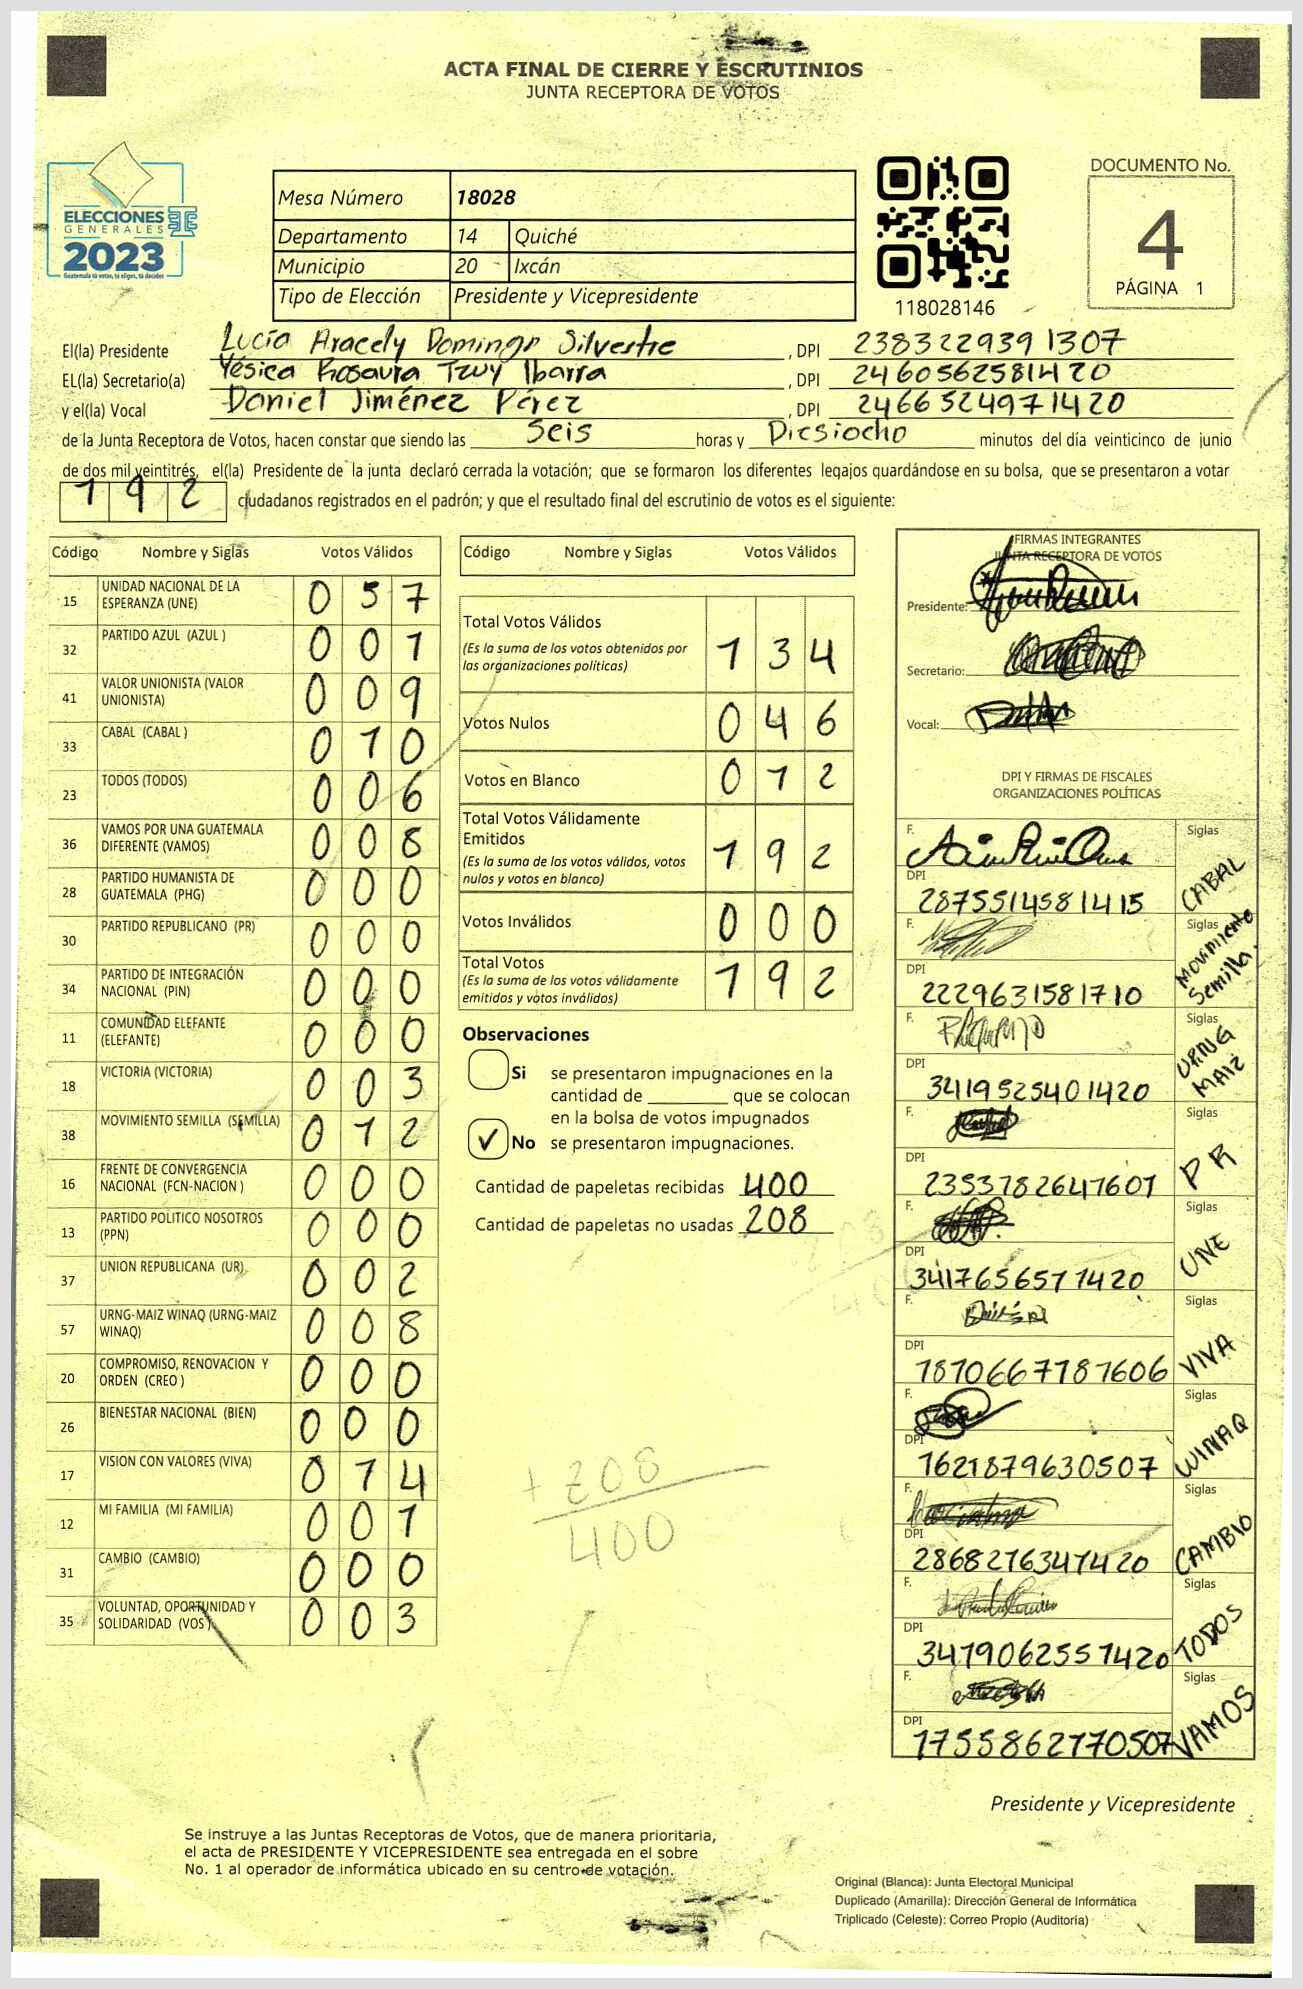 ACTA FINAL DE CIERRE Y ESCRUTINIOS
JUNTA RECEPTORA DE VOTOS
ELECCIONES
GENERALES
2023
Guatemala tú votas, tú eliges, tú decides
Mesa Número 18028
Departamento 14 Quiché
Municipio 20 Ixcán
Tipo de Elección Presidente y Vicepresidente
118028146
DOCUMENTO No.
4
PÁGINA 1
El(la) Presidente Lucía Aracely Domingo Silvestre , DPI 2383229391307
EL(la) Secretario(a) Yésica Rosaura Tzuy Ibarra , DPI 2460562581420
y el(la) Vocal Daniel Jiménez Pérez , DPI 2466524971420
de la Junta Receptora de Votos, hacen constar que siendo las Seis horas y Diesiocho minutos del día veinticinco de junio
de dos mil veintitrés, el(la) Presidente de la junta declaró cerrada la votación; que se formaron los diferentes legajos guardándose en su bolsa, que se presentaron a votar
192 ciudadanos registrados en el padrón; y que el resultado final del escrutinio de votos es el siguiente:
Código Nombre y Siglas Votos Válidos
15 UNIDAD NACIONAL DE LA ESPERANZA (UNE) 057
32 PARTIDO AZUL (AZUL ) 001
41 VALOR UNIONISTA (VALOR UNIONISTA) 009
33 CABAL (CABAL ) 010
23 TODOS (TODOS) 006
36 VAMOS POR UNA GUATEMALA DIFERENTE (VAMOS) 008
28 PARTIDO HUMANISTA DE GUATEMALA (PHG) 000
30 PARTIDO REPUBLICANO (PR) 000
34 PARTIDO DE INTEGRACIÓN NACIONAL (PIN) 000
11 COMUNIDAD ELEFANTE (ELEFANTE) 000
18 VICTORIA (VICTORIA) 003
38 MOVIMIENTO SEMILLA (SEMILLA) 012
16 FRENTE DE CONVERGENCIA NACIONAL (FCN-NACION ) 000
13 PARTIDO POLITICO NOSOTROS (PPN) 000
37 UNION REPUBLICANA (UR) 002
57 URNG-MAIZ WINAQ (URNG-MAIZ WINAQ) 008
20 COMPROMISO, RENOVACION Y ORDEN (CREO ) 000
26 BIENESTAR NACIONAL (BIEN) 000
17 VISION CON VALORES (VIVA) 014
12 MI FAMILIA (MI FAMILIA) 001
31 CAMBIO (CAMBIO) 000
35 VOLUNTAD, OPORTUNIDAD Y SOLIDARIDAD (VOS ) 003
Código Nombre y Siglas Votos Válidos
Total Votos Válidos 134
(Es la suma de los votos obtenidos por
las organizaciones políticas)
Votos Nulos 046
Votos en Blanco 012
Total Votos Válidamente
Emitidos 192
(Es la suma de los votos válidos, votos
nulos y votos en blanco)
Votos Inválidos 000
Total Votos 192
(Es la suma de los votos válidamente
emitidos y votos inválidos)
Observaciones
Si se presentaron impugnaciones en la
cantidad de ________ que se colocan
en la bolsa de votos impugnados
✓ No se presentaron impugnaciones.
Cantidad de papeletas recibidas 400
Cantidad de papeletas no usadas 208
+ 208
400
FIRMAS INTEGRANTES
JUNTA RECEPTORA DE VOTOS
Presidente:
Secretario:
Vocal:
DPI Y FIRMAS DE FISCALES
ORGANIZACIONES POLÍTICAS
F. Siglas CABAL
DPI 2875514581415
F. Siglas Movimiento Semilla
DPI 2229631581710
F. Siglas URNG MAIZ
DPI 3419525401420
F. Siglas PR
DPI 2353782641601
F. Siglas UNE
DPI 3417656571420
F. Siglas VIVA
DPI 1870667781606
F. Siglas WINAQ
DPI 1621879630507
F. Siglas CAMBIO
DPI 2868276341420
F. Siglas TODOS
DPI 3419062551420
F. Siglas VAMOS
DPI 1755862170507
Presidente y Vicepresidente
Se instruye a las Juntas Receptoras de Votos, que de manera prioritaria,
el acta de PRESIDENTE Y VICEPRESIDENTE sea entregada en el sobre
No. 1 al operador de informática ubicado en su centro de votación.
Original (Blanca): Junta Electoral Municipal
Duplicado (Amarilla): Dirección General de Informática
Triplicado (Celeste): Correo Propio (Auditoría)